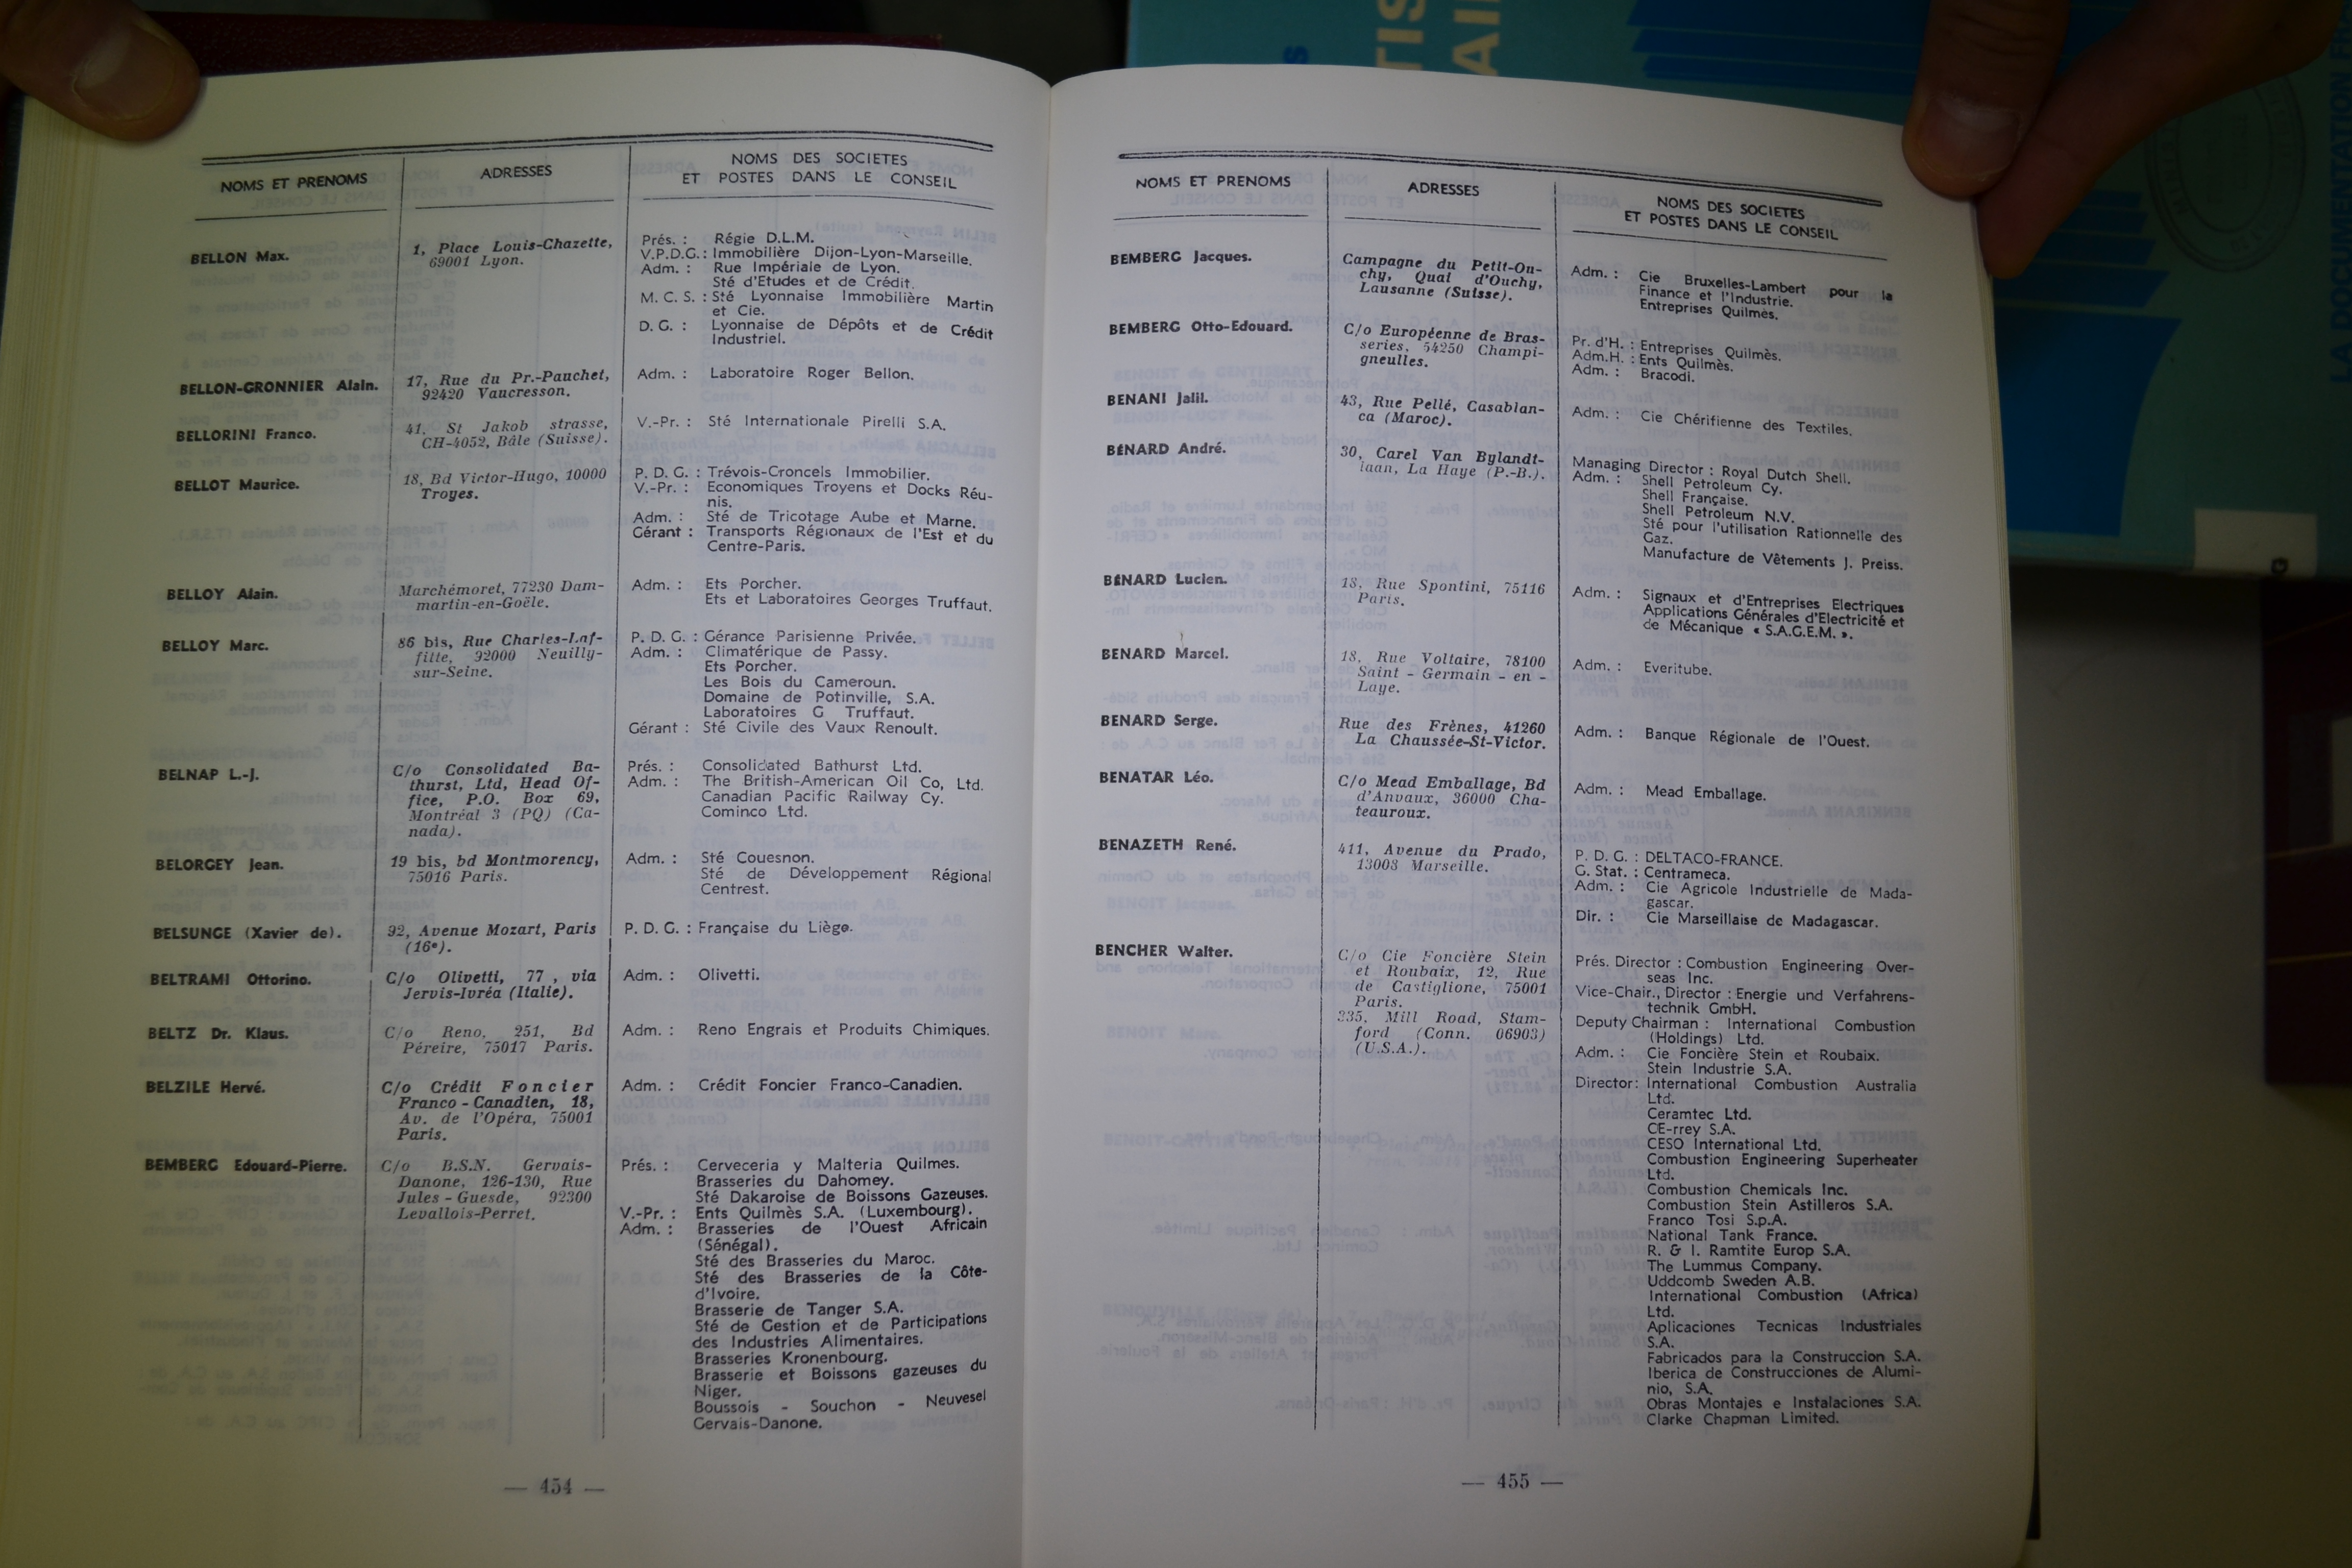 NOMS ET PRENOMS
ADRESSES
NOMS DES SOCIETES
ET POSTES DANS LE CONSEIL
BELLON Max.
1, Place Louis-Chazette,
69001 Lyon.
Prés. : Régie D.L.M.
V.P.D.G. : Immobilière Dijon-Lyon-Marseille.
Adm. : Rue Impériale de Lyon.
Sté d'Etudes et de Crédit.
M. C. S. : Sté Lyonnaise Immobilière Martin
et Cie.
D. G. : Lyonnaise de Dépôts et de Crédit
Industriel.
BELLON-GRONNIER Alain.
17, Rue du Pr.-Pauchet,
92420 Vaucresson.
Adm. : Laboratoire Roger Bellon.
BELLORINI Franco.
41, St Jakob strasse,
CH-4052, Bâle (Suisse).
V.-Pr. : Sté Internationale Pirelli S.A.
BELLOT Maurice.
18, Bd Victor-Hugo, 10000
Troyes.
P. D. G. : Trévois-Croncels Immobilier.
V.-Pr. : Economiques Troyens et Docks Réu-
nis.
Adm. : Sté de Tricotage Aube et Marne.
Gérant : Transports Régionaux de l'Est et du
Centre-Paris.
BELLOY Alain.
Marchémoret, 77230 Dam-
martin-en-Goële.
Adm. : Ets Porcher.
Ets et Laboratoires Georges Truffaut.
BELLOY Marc.
86 bis, Rue Charles-Laf-
fitte, 92000 Neuilly-
sur-Seine.
P. D. G. : Gérance Parisienne Privée.
Adm. : Climatérique de Passy.
Ets Porcher.
Les Bois du Cameroun.
Domaine de Potinville, S.A.
Laboratoires G Truffaut.
Gérant : Sté Civile des Vaux Renoult.
BELNAP L.-J.
C/o Consolidated Ba-
thurst, Ltd, Head Of-
fice, P.O. Box 69,
Montréal 3 (PQ) (Ca-
nada).
Prés. : Consolidated Bathurst Ltd.
Adm. : The British-American Oil Co, Ltd.
Canadian Pacific Railway Cy.
Cominco Ltd.
BELORGEY Jean.
19 bis, bd Montmorency,
75016 Paris.
Adm. : Sté Couesnon.
Sté de Développement Régional
Centrest.
BELSUNGE (Xavier de).
92, Avenue Mozart, Paris
(16e).
P. D. G. : Française du Liège.
BELTRAMI Ottorino.
C/o Olivetti, 77, via
Jervis-Ivréa (Italie).
Adm. : Olivetti.
BELTZ Dr. Klaus.
C/o Reno, 251, Bd
Péreire, 75017 Paris.
Adm. : Reno Engrais et Produits Chimiques.
BELZILE Hervé.
C/o Crédit Foncier
Franco-Canadien, 18,
Av. de l'Opéra, 75001
Paris.
Adm. : Crédit Foncier Franco-Canadien.
BEMBERG Edouard-Pierre.
C/o B.S.N. Gervais-
Danone, 126-130, Rue
Jules-Guesde, 92300
Levallois-Perret.
Prés. : Cerveceria y Malteria Quilmes.
Brasseries du Dahomey.
Sté Dakaroise de Boissons Gazeuses.
V.-Pr. : Ents Quilmès S.A. (Luxembourg).
Adm. : Brasseries de l'Ouest Africain
(Sénégal).
Sté des Brasseries du Maroc.
Sté des Brasseries de la Côte-
d'Ivoire.
Brasserie de Tanger S.A.
Sté de Gestion et de Participations
des Industries Alimentaires.
Brasseries Kronenbourg.
Brasserie et Boissons gazeuses du
Niger.
Boussois - Souchon - Neuvesel
Gervais-Danone.
— 454 —
NOMS ET PRENOMS
ADRESSES
NOMS DES SOCIETES
ET POSTES DANS LE CONSEIL
BEMBERG Jacques.
Campagne du Petit-Ou-
chy, Quai d'Ouchy,
Lausanne (Suisse).
Adm. : Cie Bruxelles-Lambert pour la
Finance et l'Industrie.
Entreprises Quilmès.
BEMBERG Otto-Edouard.
C/o Européenne de Bras-
series, 54250 Champi-
gneulles.
Pr. d'H. : Entreprises Quilmès.
Adm.H. : Ents Quilmès.
Adm. : Bracodi.
BENANI Jalil.
43, Rue Pellé, Casablan-
ca (Maroc).
Adm. : Cie Chérifienne des Textiles.
BÉNARD André.
30, Carel Van Bylandt-
laan, La Haye (P.-B.).
Managing Director : Royal Dutch Shell.
Adm. : Shell Petroleum Cy.
Shell Française.
Shell Petroleum N.V.
Sté pour l'utilisation Rationnelle des
Gaz.
Manufacture de Vêtements J. Preiss.
BÉNARD Lucien.
18, Rue Spontini, 75116
Paris.
Adm. : Signaux et d'Entreprises Electriques
Applications Générales d'Electricité et
de Mécanique « S.A.G.E.M. ».
BENARD Marcel.
18, Rue Voltaire, 78100
Saint - Germain - en -
Laye.
Adm. : Everitube.
BENARD Serge.
Rue des Frènes, 41260
La Chaussée-St-Victor.
Adm. : Banque Régionale de l'Ouest.
BENATAR Léo.
C/o Mead Emballage, Bd
d'Anvaux, 36000 Cha-
teauroux.
Adm. : Mead Emballage.
BENAZETH René.
411, Avenue du Prado,
13008 Marseille.
P. D. G. : DELTACO-FRANCE.
G. Stat. : Centrameca.
Adm. : Cie Agricole Industrielle de Mada-
gascar.
Dir. : Cie Marseillaise de Madagascar.
BENCHER Walter.
C/o Cie Foncière Stein
et Roubaix, 12, Rue
de Castiglione, 75001
Paris.
335, Mill Road, Stam-
ford (Conn. 06903)
(U.S.A.).
Prés. Director : Combustion Engineering Over-
seas Inc.
Vice-Chair., Director : Energie und Verfahrens-
technik GmbH.
Deputy Chairman : International Combustion
(Holdings) Ltd.
Adm. : Cie Foncière Stein et Roubaix.
Stein Industrie S.A.
Director: International Combustion Australia
Ltd.
Ceramtec Ltd.
CE-rrey S.A.
CESO International Ltd.
Combustion Engineering Superheater
Ltd.
Combustion Chemicals Inc.
Combustion Stein Astilleros S.A.
Franco Tosi S.p.A.
National Tank France.
R. & I. Ramtite Europ S.A.
The Lummus Company.
Uddcomb Sweden A.B.
International Combustion (Africa)
Ltd.
Aplicaciones Tecnicas Industriales
S.A.
Fabricados para la Construccion S.A.
Iberica de Construcciones de Alumi-
nio, S.A.
Obras Montajes e Instalaciones S.A.
Clarke Chapman Limited.
— 455 —
LA DOCUMENTATION